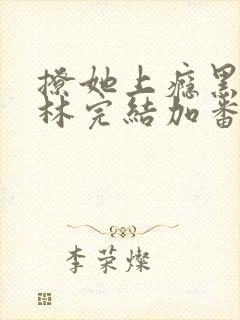 撩她上瘾黑
林完結加番
李荣燦